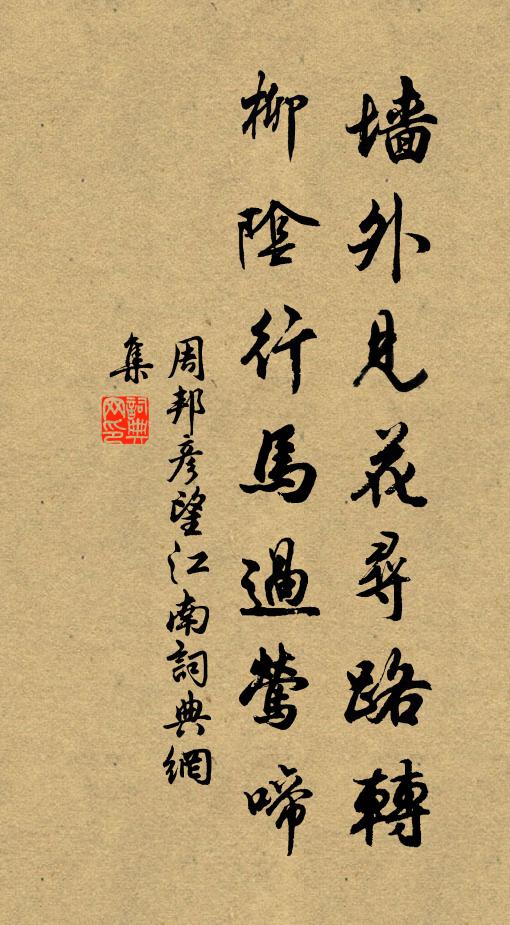 墻外見花尋路轉
柳陰行馬過鶯啼
周邦彥望江南詞典網
集
詞典网印